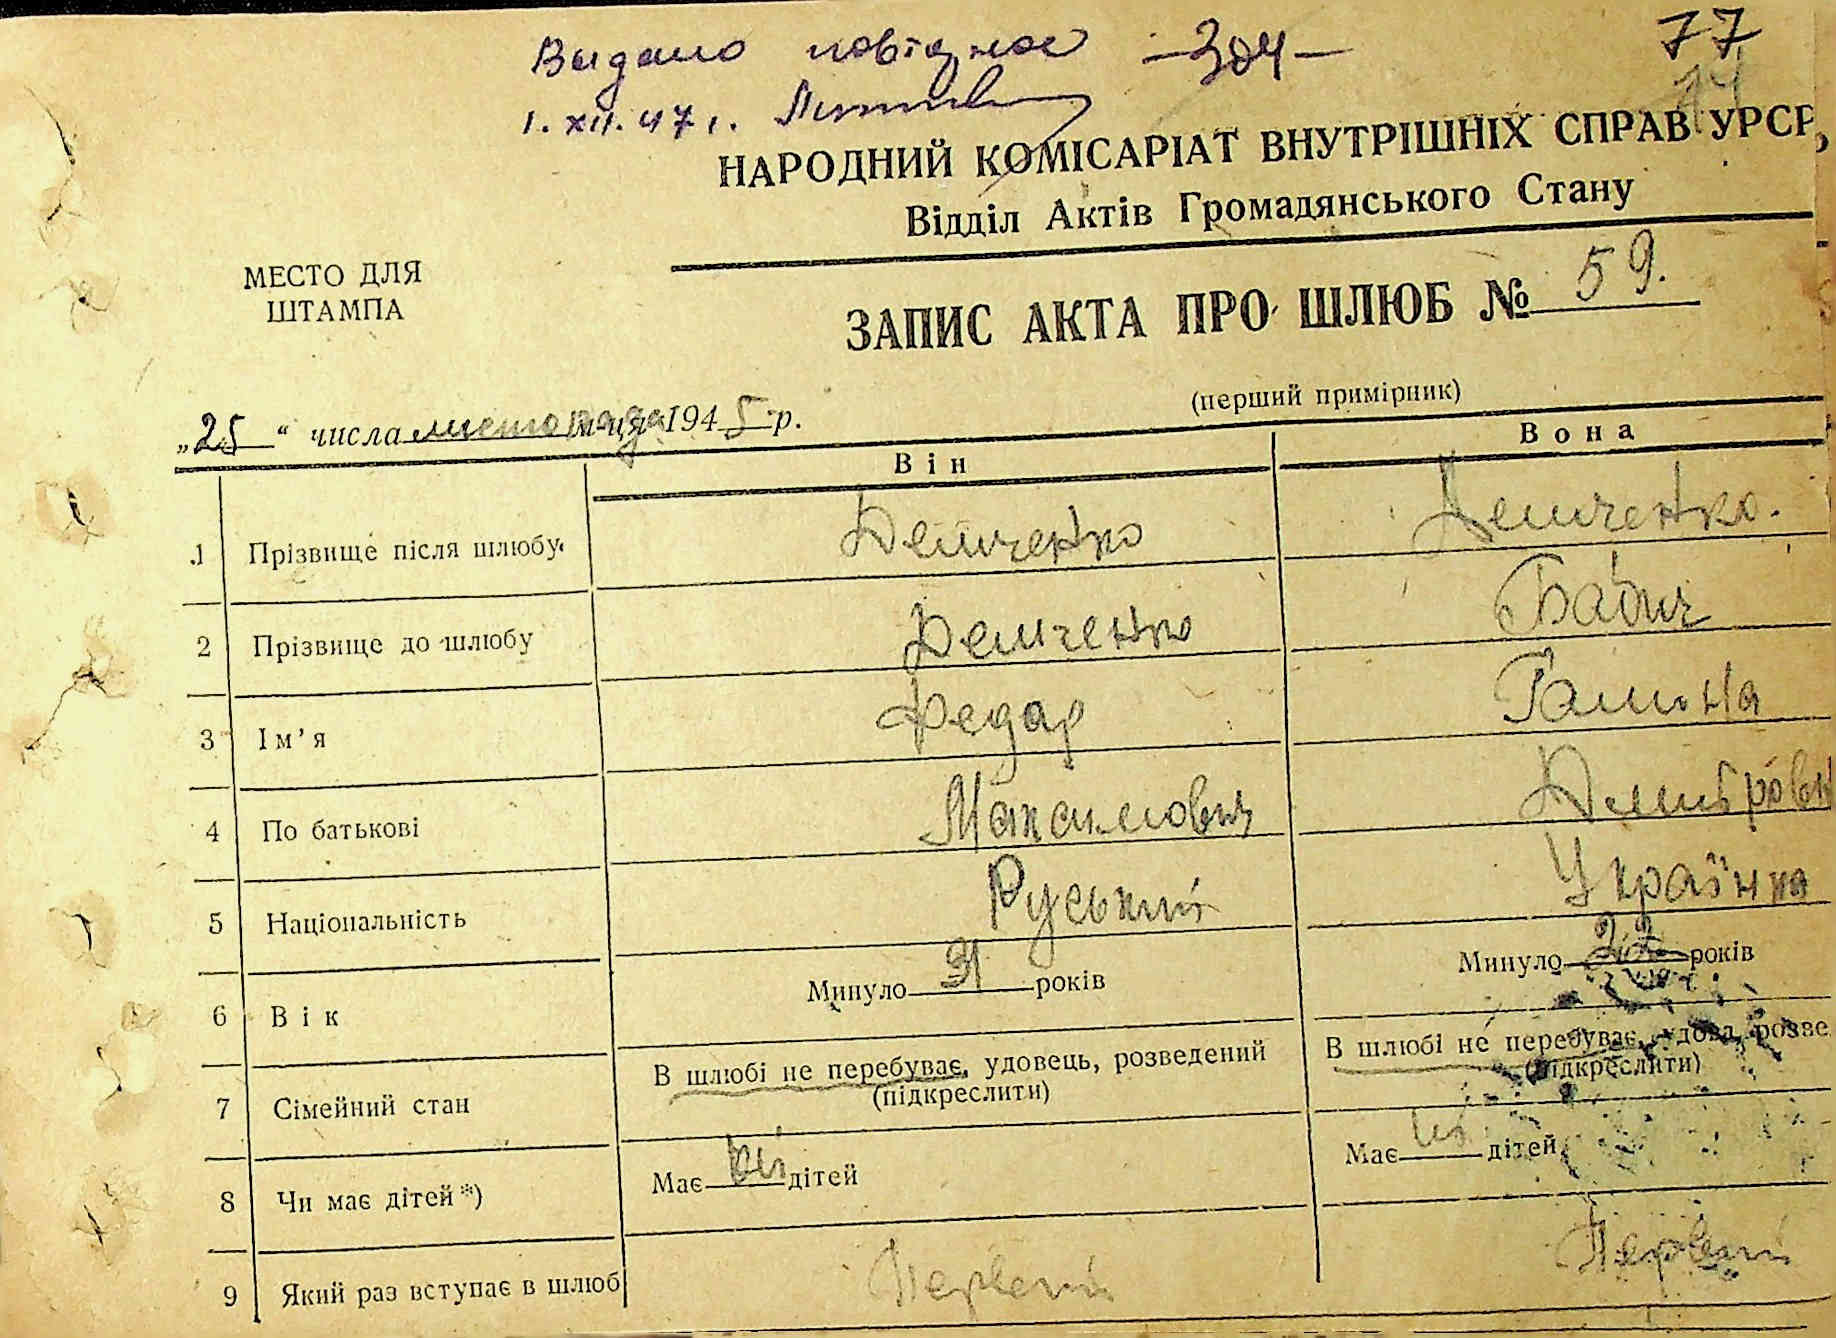 Видано повідмос -304- 77
14
1. XII. 47 г.
НАРОДНИЙ КОМІСАРІАТ ВНУТРІШНІХ СПРАВ УРСР,
Відділ Актів Громадянського Стану
МЕСТО ДЛЯ
ШТАМПА
ЗАПИС АКТА ПРО ШЛЮБ № 59.
(перший примірник)
„25“ числа листопада м-ця 1945 р.
Він Вона
1 Прізвище після шлюбу Демченко Демченко.
2 Прізвище до шлюбу Демченко Бабич
3 Ім’я Федар Галина
4 По батькові Максимович Дмитровн
5 Національність Руський Українка
6 Вік Минуло 31 років Минуло 22 років
7 Сімейний стан В шлюбі не перебуває, удовець, розведений В шлюбі не перебуває, удова, розве
(підкреслити) (підкреслити)
8 Чи має дітей*) Має ні дітей Має ні дітей
9 Який раз вступає в шлюб Первий Первий